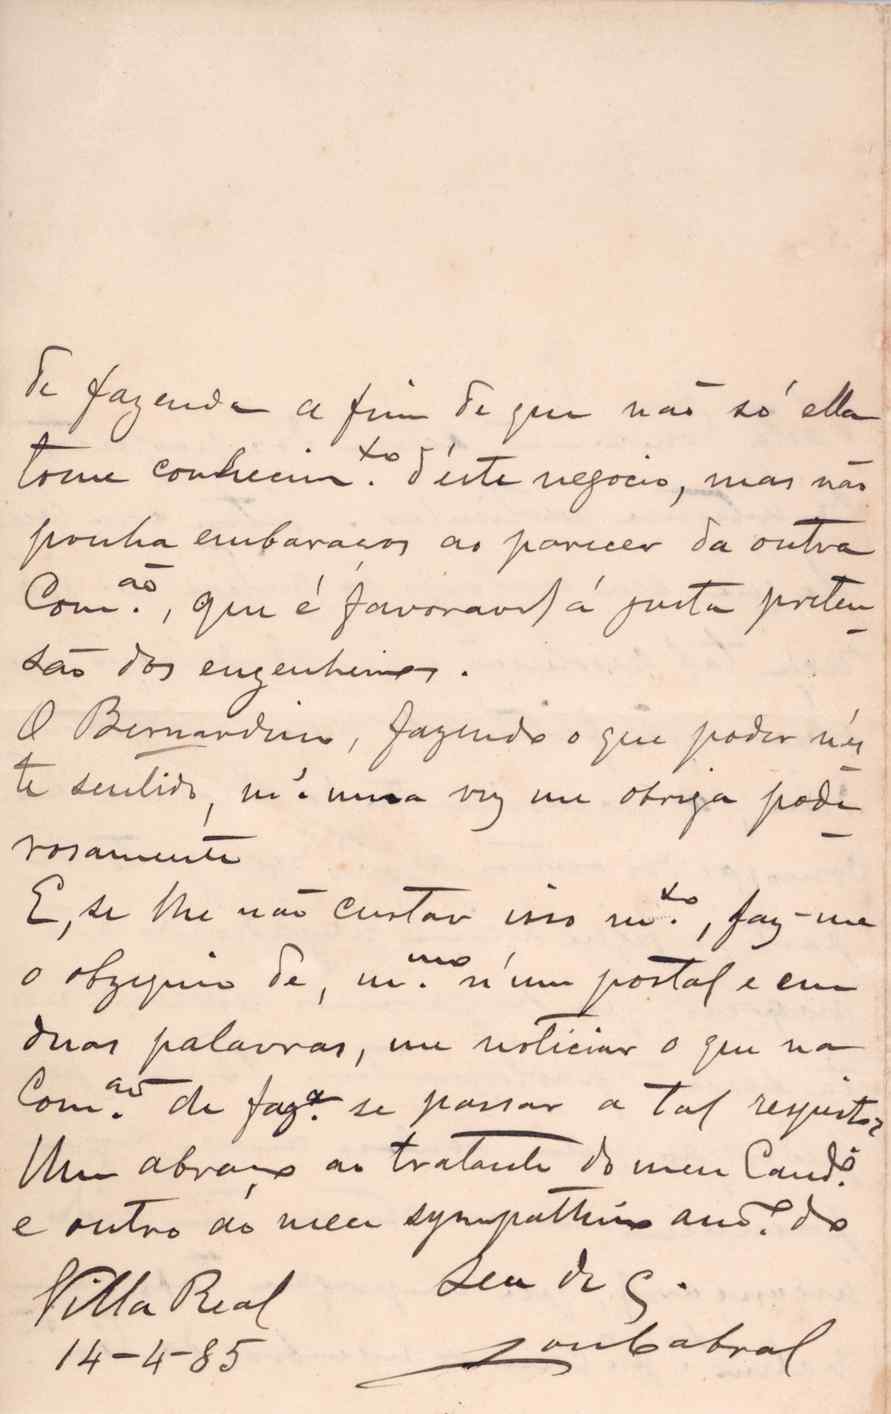 de fazenda a fim de que não só ella
tome conhecim.to d'éste negocio, mas não
ponha embaraços ao parecer da outra
Com.ão, que é favoravel á justa preten-
são dos engenheiros.
O Bernardino, fazendo o que poder n'és
te sentido, m.s uma vez me obriga pode-
rosamente
E, se lhe não custar isso m.to, faz-me
o obzequio de, m.mo n'um postal e em
duas palavras, me noticiar o que na
Com.ão de faz.a se passar a tal respeito?
Um abraço ao tratante do meu Cand.o
e outro do meu sympathico am.o do
Villa Real Seu do C.
14-4-85 Cabral